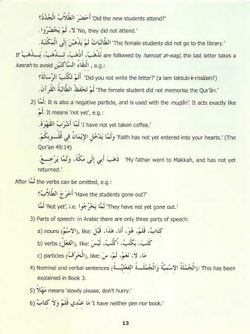 أَحَضَرَ الطُّلَّابُ الْجُدُدُ؟ 'Did the new students attend?'
لَا، لَمْ يَحْضُرُوا. 'No, they did not attend.'
الطَّالِبَاتُ لَمْ يَذْهَبْنَ إِلَى الْمَكْتَبَةِ. 'The female students did not go to the library.'
If يَذْهَبْ ، تَذْهَبْ ، أَذْهَبْ ، نَذْهَبْ are followed by hamzat al-waṣl, the last letter takes a
kasrah to avoid الْتِقَاءُ السَّاكِنَيْنِ, e.g.:
أَلَمْ تَكْتُبِ الرِّسَالَةَ؟ 'Did you not write the letter?' (a lam taktub-i-r-risālah?)
لَمْ تَحْفَظِ الطَّالِبَةُ الْقُرْآنَ. 'The female student did not memorise the Qur'ān.'
2) لَمَّا: It is also a negative particle, and is used with the muḍāri'. It acts exactly like
لَمْ. It means 'not yet', e.g.:
لَمَّا أَشْرَبِ الْقَهْوَةَ 'I have not yet taken coffee.'
وَلَمَّا يَدْخُلِ الْإِيمَانُ فِي قُلُوبِكُمْ 'Faith has not yet entered into your hearts.' (The
Qur'an 49:14)
ذَهَبَ أَبِي إِلَى مَكَّةَ، وَلَمَّا يَرْجِعْ. 'My father went to Makkah, and has not yet
returned.'
After لَمَّا the verbs can be omitted, e.g.:
أَخَرَجَ الطُّلَّابُ؟ 'Have the students gone out?'
لَمَّا 'Not yet', i.e. لَمَّا يَخْرُجُوا 'They have not yet gone out.'
3) Parts of speech: in Arabic there are only three parts of speech:
a) nouns (الِاسْمُ), like: كِتَابٌ، قَلَمٌ، هُوَ، أَنَا، هَذَا،
b) verbs (الْفِعْلُ), like: كَتَبَ، يَكْتُبُ، اُكْتُبْ، لَيْسَ
c) particles (الْحَرْفُ), like: مَا، لَا، نَعَمْ، لَمْ، مِنْ
4) Nominal and verbal sentences (الْجُمْلَةُ الِاسْمِيَّةُ وَالْجُمْلَةُ الْفِعْلِيَّةُ): This has been
explained in Book 3.
5) مَهْلًا means 'slowly please, don't hurry.'
6) مَا عِنْدِي قَلَمٌ وَلَا كِتَابٌ 'I have neither pen nor book.'
13